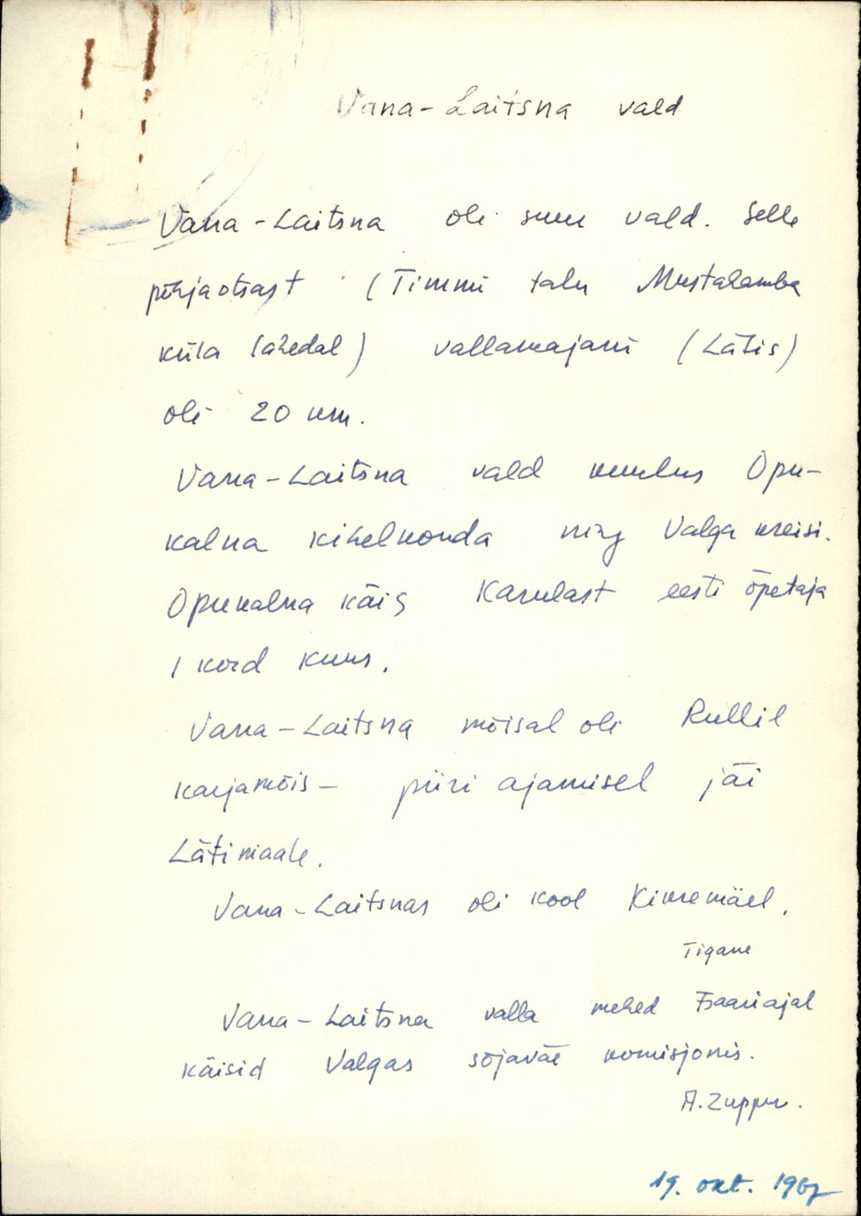 Vana-Laitsna vald
Vana-Laitsna oli suur vald. Selle
põhjaotsast (Timmi talu Mustahamba
küla lähedal) vallamajani (Lätis)
oli 20 km.
Vana-Laitsna vald kuulus Opu-
kalna kihelkonda ning Valga kreisi.
Opukalna käis Karulast eesti õpetaja
1 kord kuus.
Vana-Laitsna mõisal oli Rullil
karjamõis – piiri ajamisel jäi
Lätimaale.
Vana-Laitsnas oli kool Kivremäel.
Tigane
Vana-Laitsna valla mehed Tsaariajal
käisid Valgas sõjaväe komisjonis.
A. Zuppur.
19. okt. 1967